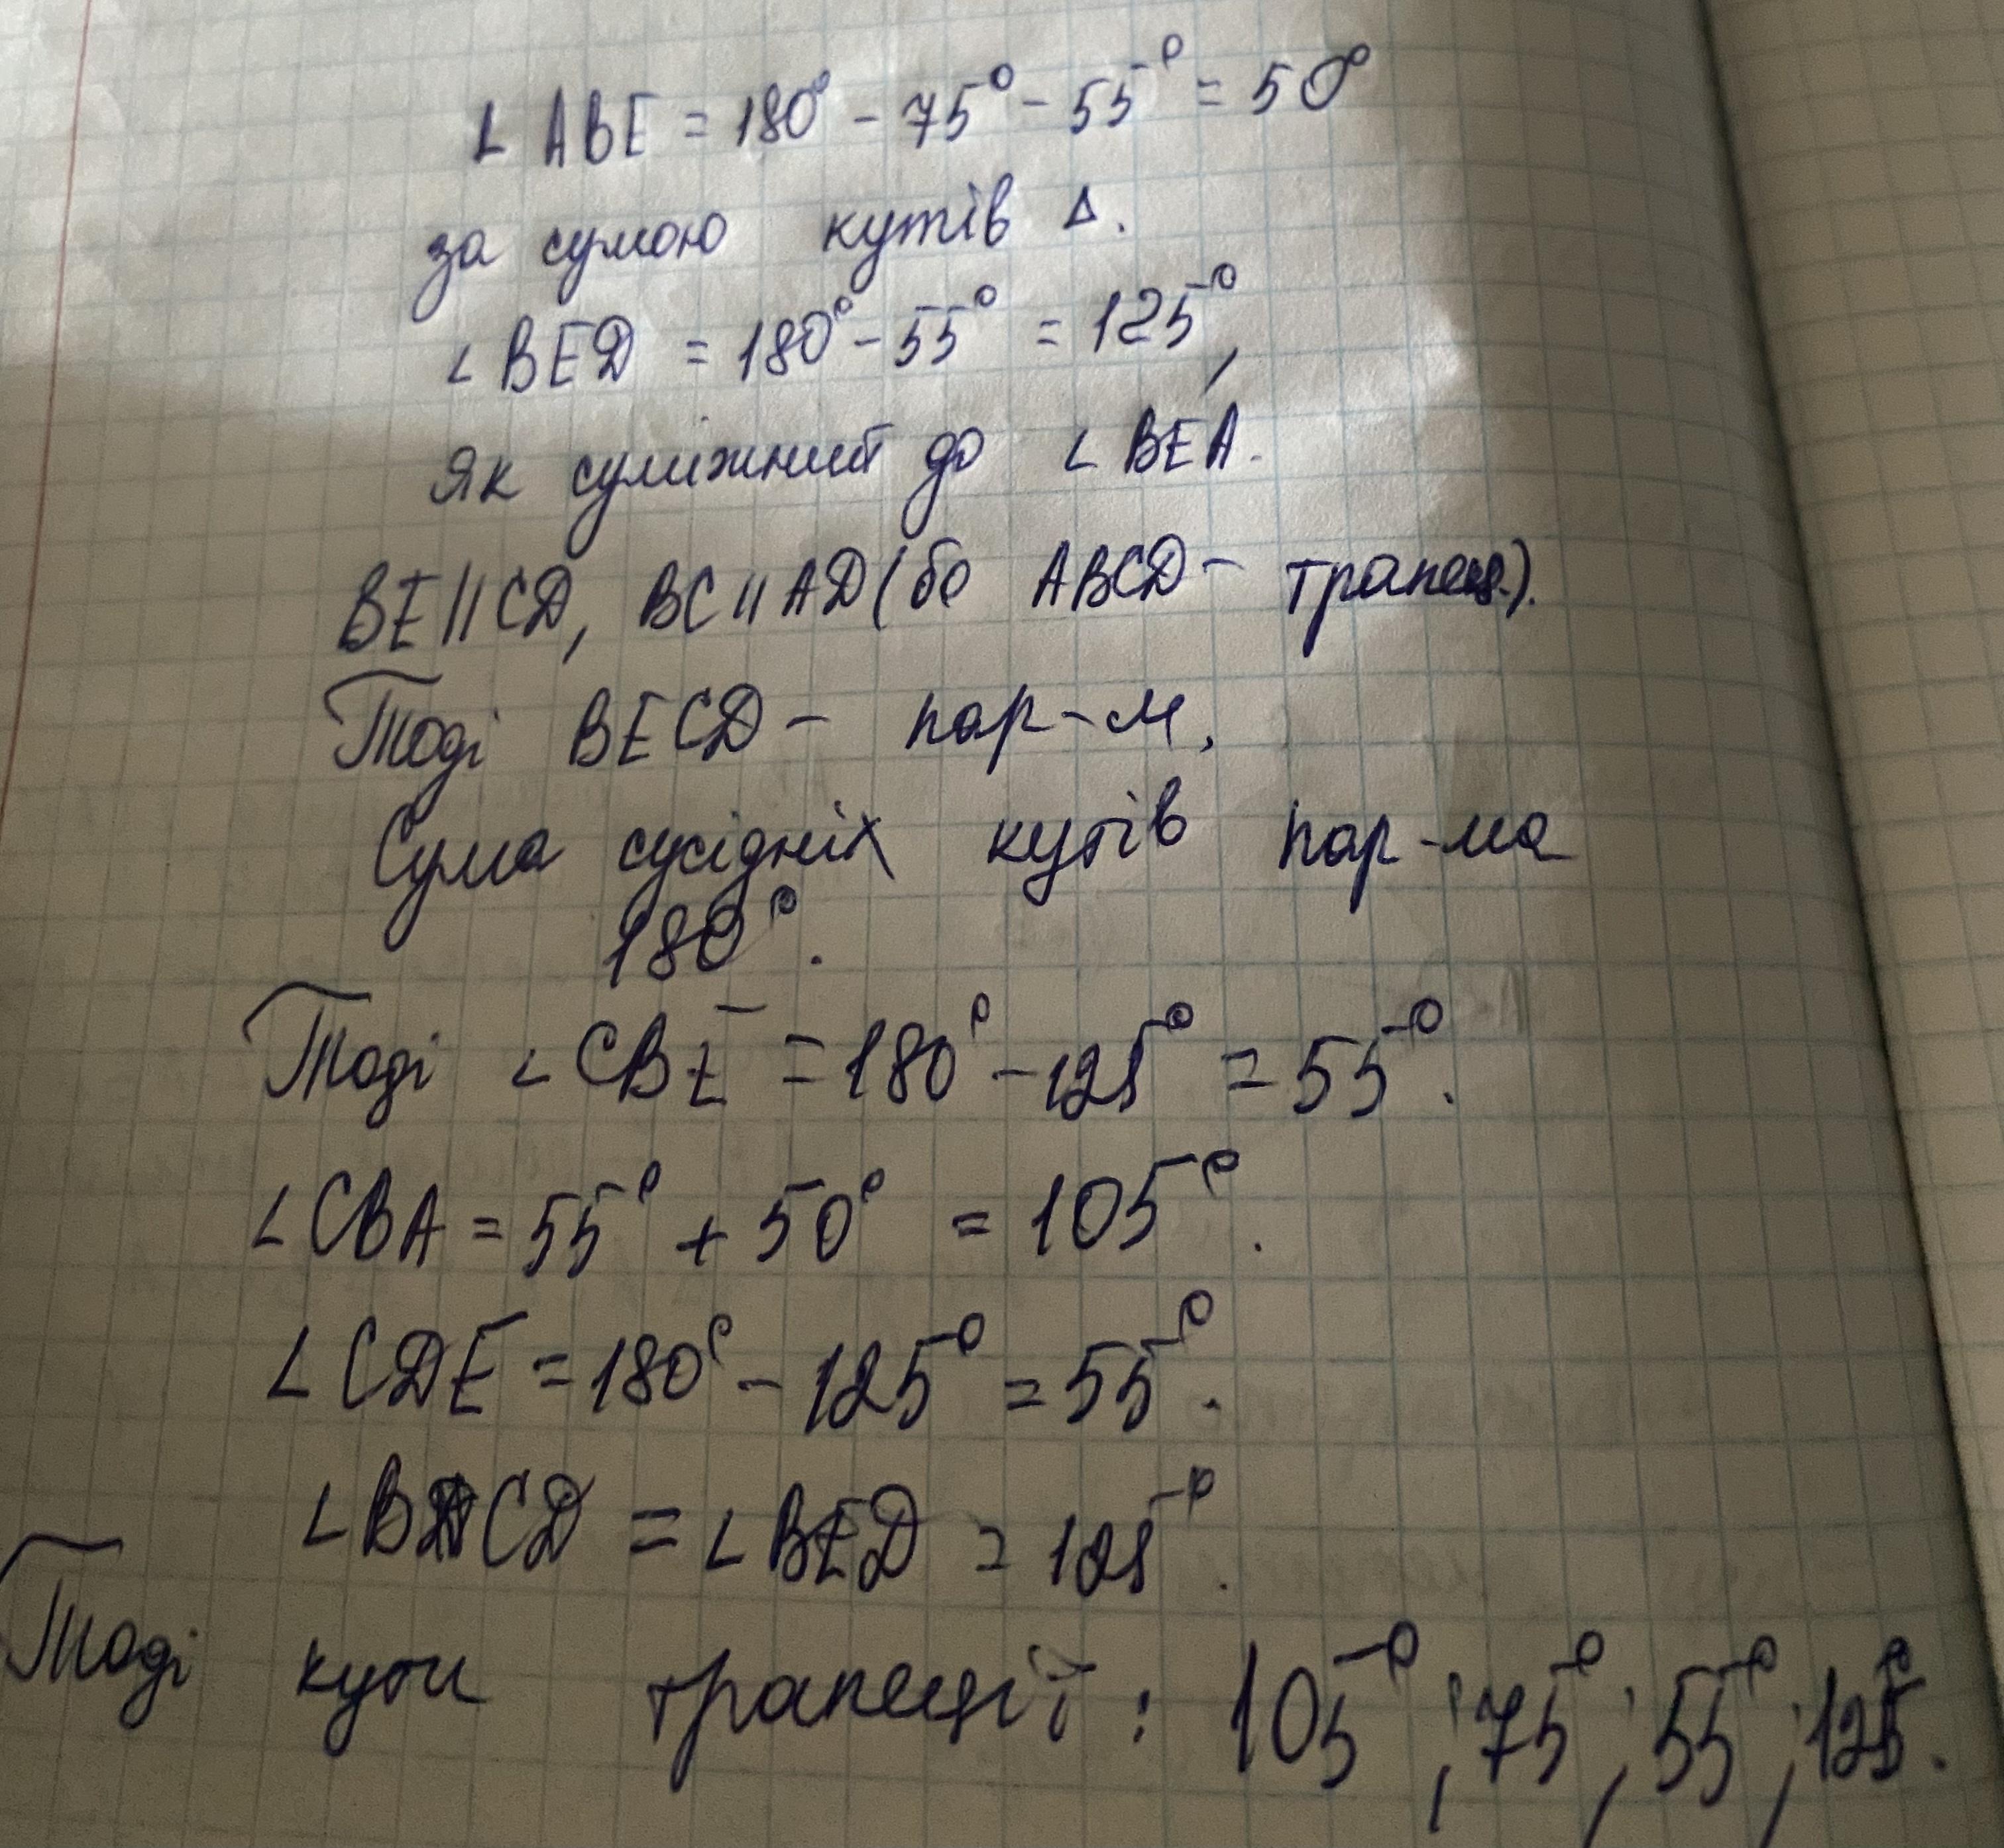 ∠ABE = 180° - 75° - 55° = 50°
за сумою кутів Δ.
∠BED = 180° - 55° = 125°,
як суміжний до ∠BEA.
BE||CD, BC||AD (бо ABCD - трапец.).
Тоді BECD - пар-м.
Сума сусідніх кутів пар-ма
180°.
Тоді ∠CBE = 180° - 125° = 55°.
∠CBA = 55° + 50° = 105°.
∠CDE = 180° - 125° = 55°.
∠BCD = ∠BED = 125°.
Тоді кути трапеції: 105°; 75°; 55°; 125°.